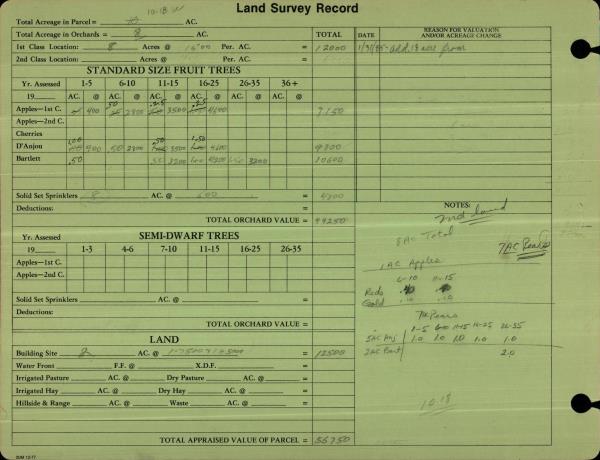 Land Survey Record
10.18 W
Total Acreage in Parcel = AC.
Total Acreage in Orchards = 8 AC. TOTAL DATE REASON FOR VALUATION AND/OR ACREAGE CHANGE
1st Class Location: 8 Acres @ 1500 Per. AC. = 12000 1/31/85
2nd Class Location: Acres @ Per. AC. =
STANDARD SIZE FRUIT TREES
Yr. Assessed 1-5 6-10 11-15 16-25 26-35 36+
19 AC. @ AC. @ AC. @ AC. @ AC. @ AC. @
Apples—1st C. 400 .50 2800 .25 3500 .25 4600 7150
Apples—2nd C.
Cherries
D'Anjou 1.00 .50 2800 3500 1.50 4600 9800
Bartlett .50 .50 3200 3200 10600
Solid Set Sprinklers 8 AC. @ 600 = 4800
Deductions: =
TOTAL ORCHARD VALUE = 44250
SEMI-DWARF TREES
Yr. Assessed 1-3 4-6 7-10 11-15 16-25 26-35
19 AC. @ AC. @ AC. @ AC. @ AC. @ AC. @
Apples—1st C.
Apples—2nd C.
Solid Set Sprinklers AC. @ =
Deductions:
TOTAL ORCHARD VALUE =
LAND
Building Site 2 AC. @ = 12500
Water Front F.F. @ X.D.F. =
Irrigated Pasture AC. @ Dry Pasture AC. @ =
Irrigated Hay AC. @ Dry Hay AC. @ =
Hillside & Range AC. @ Waste AC. @ =
TOTAL APPRAISED VALUE OF PARCEL = 56750
NOTES:
2nd land
8 AC Total
7 AC Pears
1 AC Apples
6-10 11-15
Reds
Gold .10 .10
7AC Pears
1-5 6-10 11-15 16-25 26-35
5AC Anj 1.0 1.0 1.0 1.0 1.0
2AC Bart 2.0
10.18